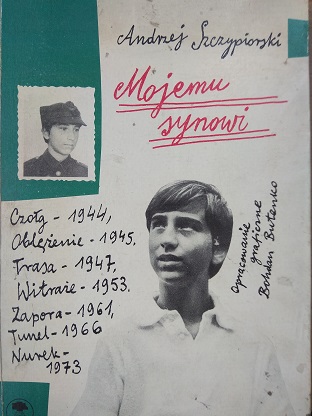 Andrzej Szczypiorski
Mojemu
synowi
Czołg - 1944,
Oblężenie - 1945,
Trasa - 1947,
Witraże - 1953.
Zapora - 1961,
Tunel - 1966
Nurek -
1973
opracowanie
graficzne
Bohdan Butenko